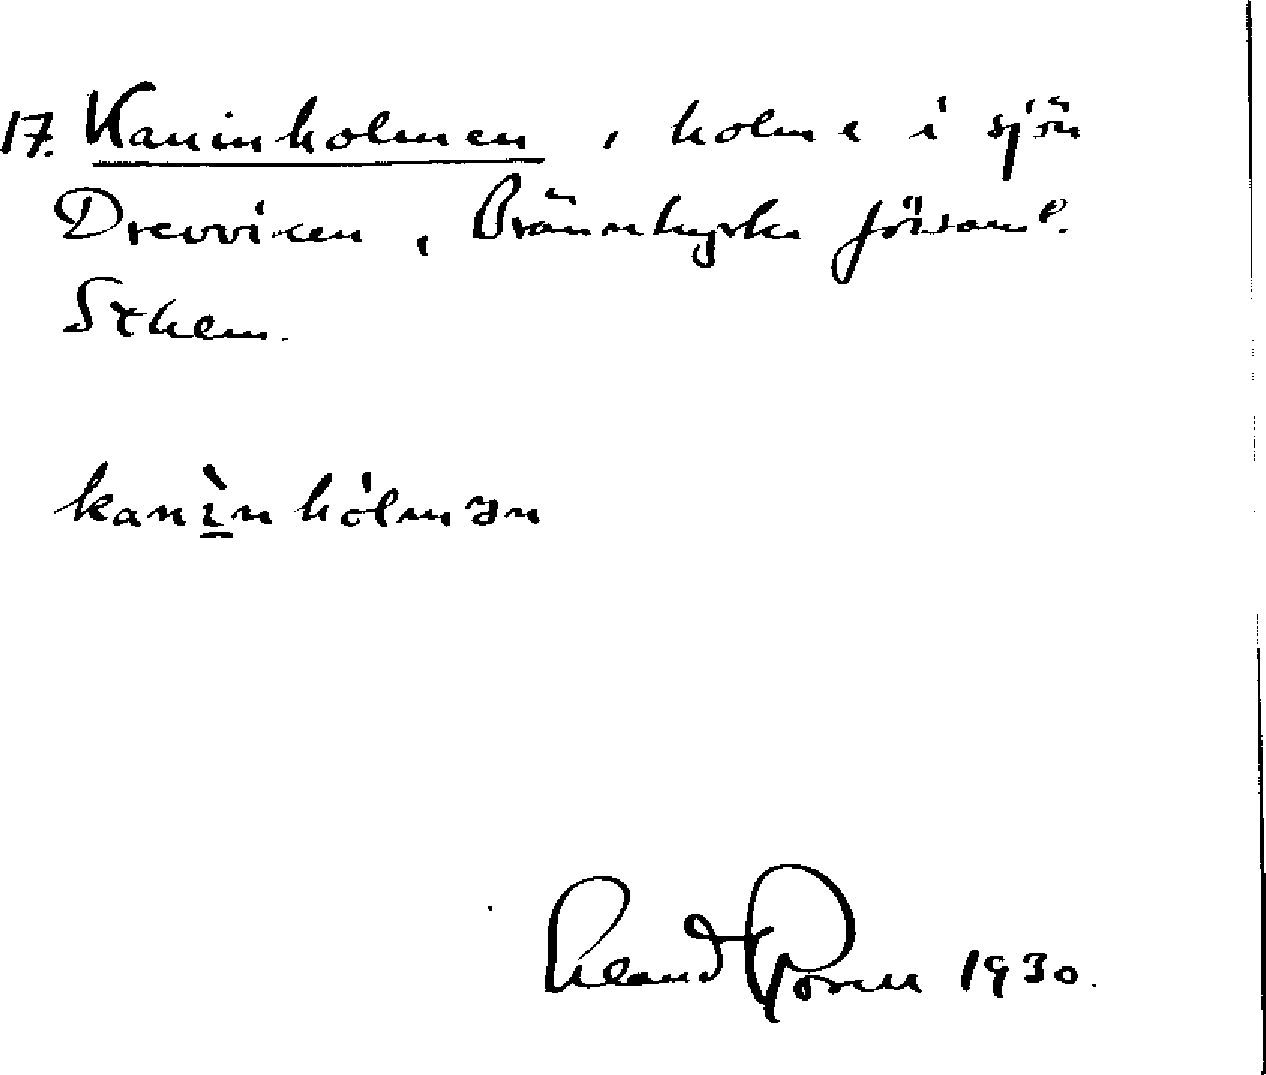 17. Kaninholmen, holme i sjön
Drevviken, Brännkyrka församl.
Sthlm.
kanı̀nhól̀mən
1930.